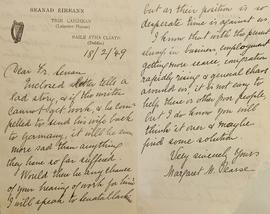 SEANAD EIREANN
TIGH LAIGHEAN
(Leinster House)
BAILE ÁTHA CLIATH
(Dublin)
18/2/49
Dear Dr.
Enclosed tells a
sad story, & if the writer
cannot get work, & be com-
pelled to send his wife back
to Germany, it will be even
more sad than anything
they have so far suffered.
Would there be any chance
of your hearing of work for him
I will speak to
but as their position is so
desperate time is against us.
I know that with the present
slump in business, employment
getting more scarce, emigration
rapidly rising & general chaos
around us it is not easy to
help these or other poor people,
but I do know you will
think it over & maybe
find some solution
Very sincerely Yours
Margaret M. Pearse